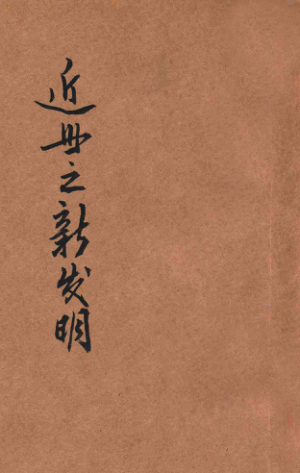 近世之新发明